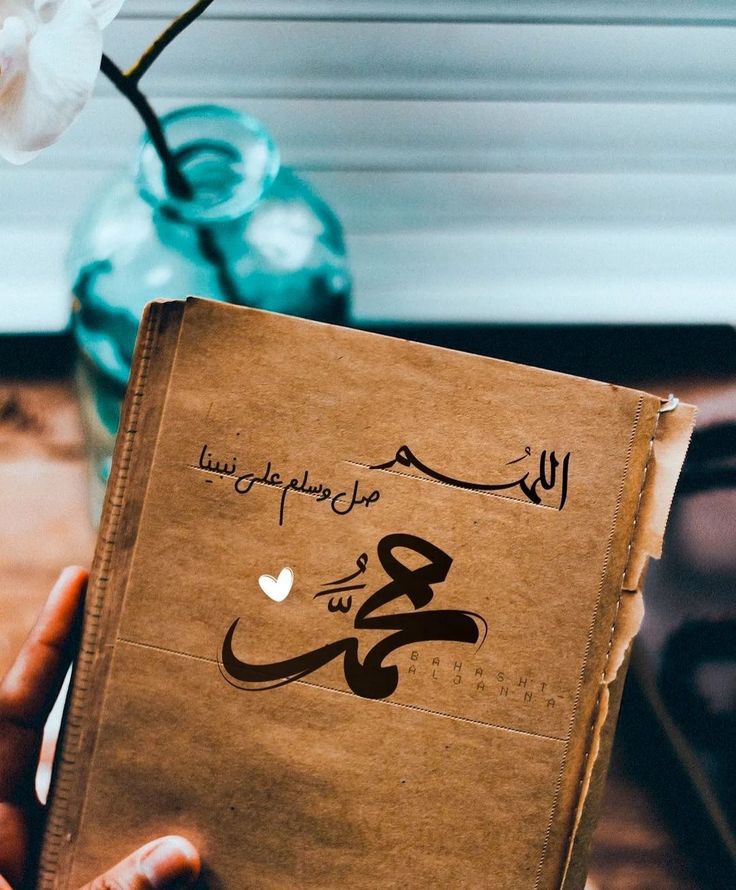 اللهم
صل وسلم على نبينا
محمد
BAHASHT_
ALJANNA